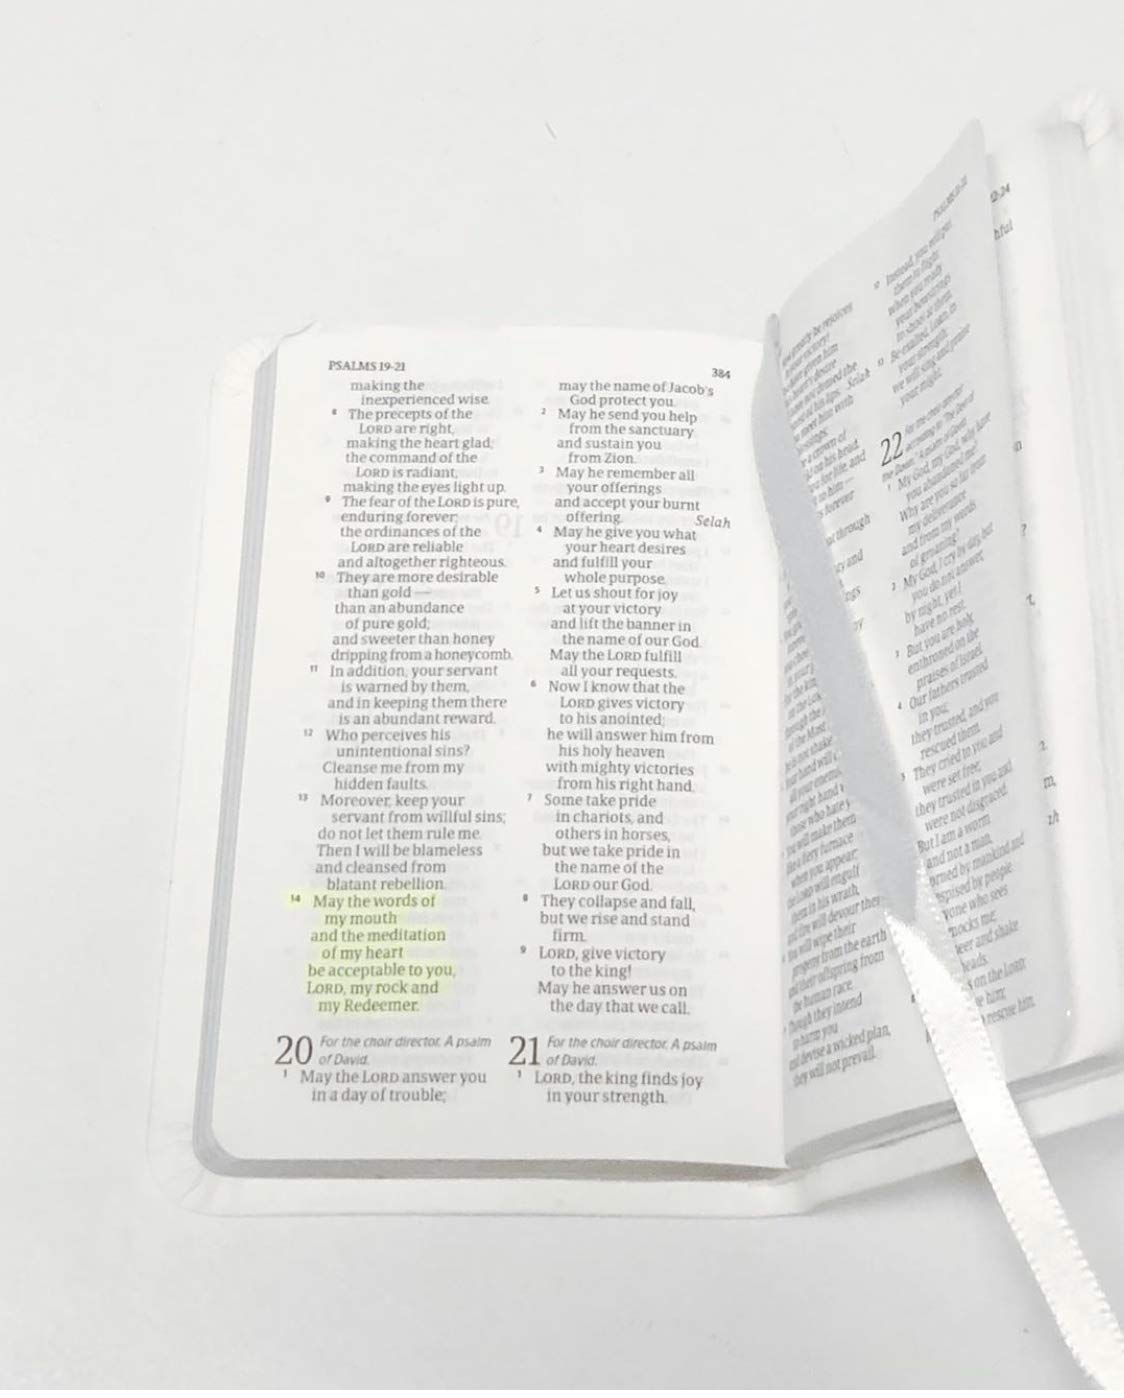 PSALMS 19-21
384
making the
inexperienced wise.
8 The precepts of the
LORD are right,
making the heart glad;
the command of the
LORD is radiant,
making the eyes light up.
9 The fear of the LORD is pure,
enduring forever;
the ordinances of the
LORD are reliable
and altogether righteous.
10 They are more desirable
than gold —
than an abundance
of pure gold;
and sweeter than honey
dripping from a honeycomb.
11 In addition, your servant
is warned by them,
and in keeping them there
is an abundant reward.
12 Who perceives his
unintentional sins?
Cleanse me from my
hidden faults.
13 Moreover, keep your
servant from willful sins;
do not let them rule me.
Then I will be blameless
and cleansed from
blatant rebellion.
14 May the words of
my mouth
and the meditation
of my heart
be acceptable to you,
LORD, my rock and
my Redeemer.
20 For the choir director. A psalm
of David.
1 May the LORD answer you
in a day of trouble;
may the name of Jacob's
God protect you.
2 May he send you help
from the sanctuary
and sustain you
from Zion.
3 May he remember all
your offerings
and accept your burnt
offering. Selah
4 May he give you what
your heart desires
and fulfill your
whole purpose.
5 Let us shout for joy
at your victory
and lift the banner in
the name of our God.
May the LORD fulfill
all your requests.
6 Now I know that the
LORD gives victory
to his anointed;
he will answer him from
his holy heaven
with mighty victories
from his right hand.
7 Some take pride
in chariots, and
others in horses,
but we take pride in
the name of the
LORD our God.
8 They collapse and fall,
but we rise and stand
firm.
9 LORD, give victory
to the king!
May he answer us on
the day that we call.
21 For the choir director. A psalm
of David.
1 LORD, the king finds joy
in your strength.
Selah
forever
through
and
when you appear;
will engulf
in his wrath,
will devour
will wipe their
progeny from the earth
and their offspring from
the human race.
Though they intend
to harm you
and devise a wicked plan,
they will not prevail.
12 Instead, you will put
them to flight
when you ready
your bowstrings
to shoot at them.
13 Be exalted, LORD, in
your strength;
we will sing and praise
your might.
22 For the choir director:
according to "The Deer of
the Dawn." A psalm of David.
1 My God, my God, why have
you abandoned me?
Why are you so far from
my deliverance
and from my words
of groaning?
2 My God, I cry by day, but
you do not answer,
by night, yet I
have no rest.
3 But you are holy,
enthroned on the
praises of Israel.
4 Our fathers trusted
in you;
they trusted, and you
rescued them.
5 They cried to you and
were set free;
they trusted in you and
were not disgraced.
But I am a worm
and not a man,
by mankind and
by people.
who sees
me;
and shake
heads:
on the LORD;
him;
rescue him,